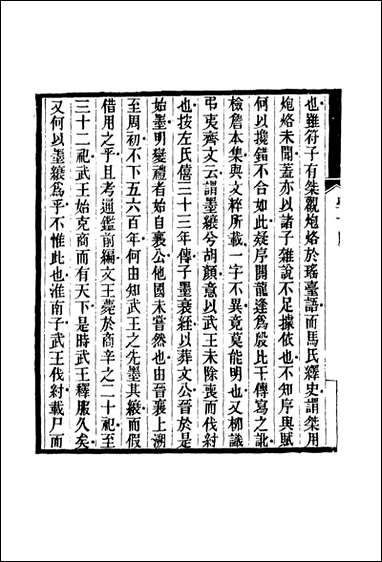 也雖符子有桀觀炮烙於瑤臺語而馬氏繹史謂桀用
炮烙未聞蓋亦以諸子雜說不足據依也不知序與賦
何以攙錯不合如此疑序開龍逢爲殷比干傳寫之訛
檢詹本集與文粹所載一字不異竟莫能明也又柳識
弔夷齊文云謂墨縗兮胡顏意以武王未除喪而伐紂
也按左氏僖三十三年傳子墨衰絰以葬文公晉於是
始墨明變禮者始自襄公他國未嘗然也由晉襄上溯
至周初不下五六百年何由知武王之先墨其縗而假
借用之乎且考通鑑前編文王薨於商辛之二十祀至
三十二祀武王始克商而有天下是時武王釋服久矣
又何以墨縗爲乎不惟此也淮南子武王伐紂載尸而